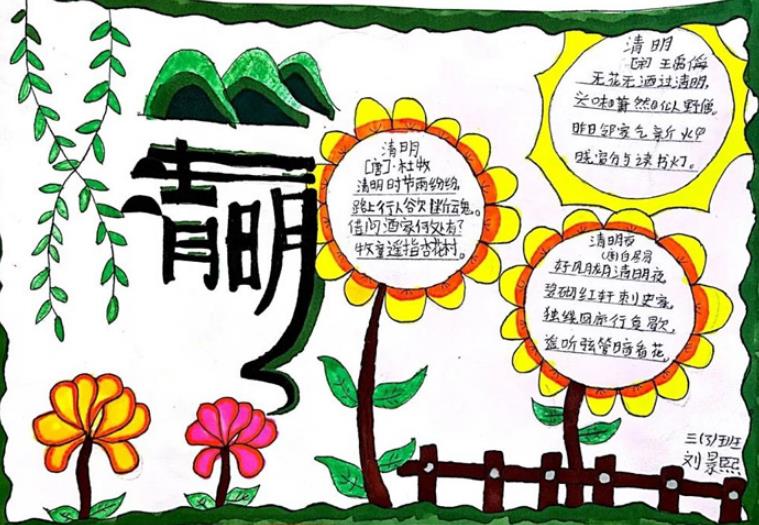 清明
清明
[唐]·杜牧
清明时节雨纷纷,
路上行人欲断魂。
借问酒家何处有?
牧童遥指杏花村。
清明
[宋]王禹偁
无花无酒过清明,
兴味萧然似野僧。
昨日邻家乞新火
晓窗分与读书灯。
清明夜
(唐)白居易
好风胧月清明夜,
碧砌红轩刺史家,
独绕回廊行复歇,
遥听弦管暗看花。
三(3)班
刘景熙